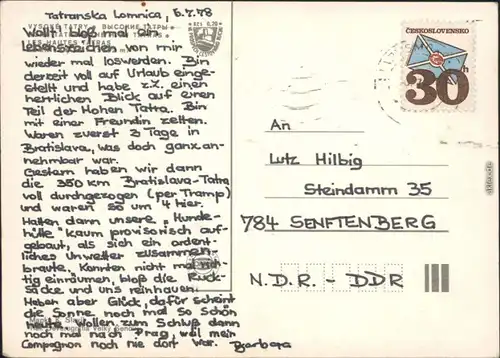 Tatranska Lomnica, 6.7.78
VYSOKÉ TATRY · ВЫСОКИЕ ТАТРЫ
LES HAUTES TATRAS
Kčs 0,70
Wollt bloß mal ein
lebenszeichen von mir
wieder mal loswerden. Bin
derzeit voll auf Urlaub einge-
stellt und habe z.Z. einen
herrlichen Blick auf einen
Teil der Hohen Tatra. Bin
mit einer Freundin zelten.
Waren zuerst 3 Tage in
Bratislava, was doch ganz an-
nehmbar war.
Gestern haben wir dann
die 350 km Bratislava-Tatra
voll durchgezogen (per Tramp)
und waren so um 4 hier.
Hatten dann unsere „Hunde-
hütte" kaum provisorisch auf-
gebaut, als sich ein ordent-
liches Unwetter zusammen-
braute. Konnten nicht mal rich-
tig einräumen, bloß die Ruck-
säcke und uns reinhauen.
Haben aber Glück, dafür scheint
die Sonne noch mal so schön
heute. Wollen zum Schluß dann
noch mal nach Prag, weil mein
Compagnon noch nie dort war. Barbara
ČESKOSLOVENSKO
30h
An
Lutz Hilbig
Steindamm 35
784 SENFTENBERG
N.D.R. - DDR